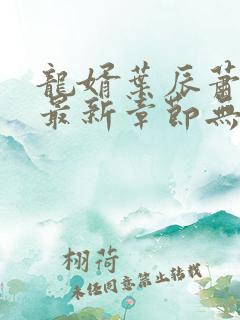 龍婿葉辰蕭
最新章節無
栩荷
未經同意禁止轉載